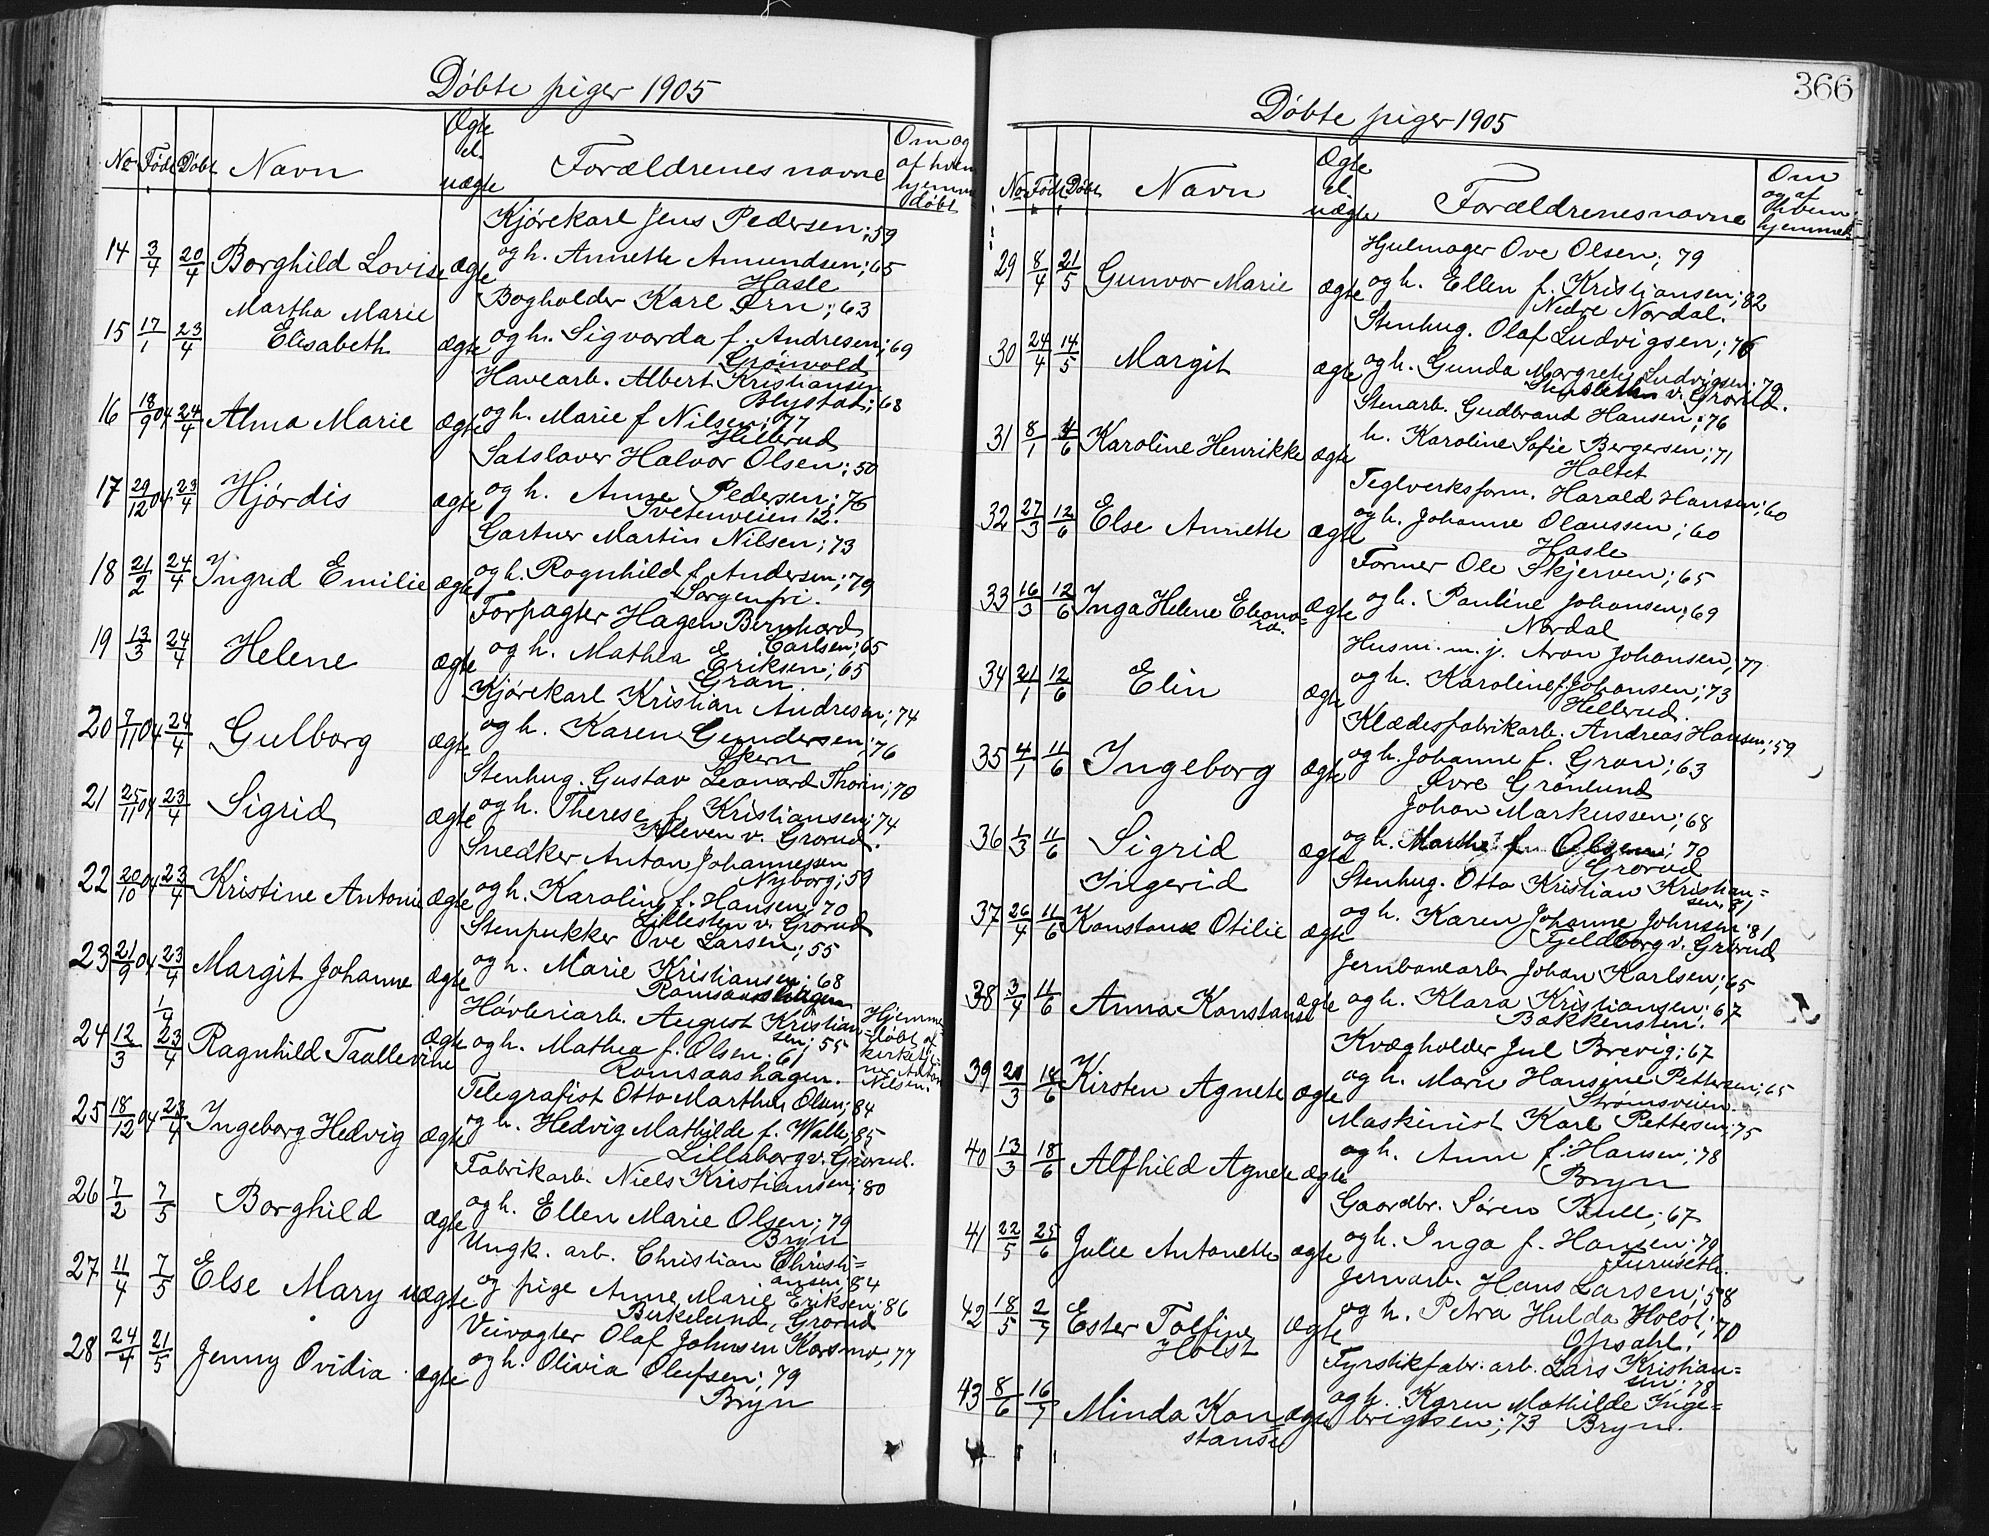 Døbte piger 1905
No Født Døbt Navn Ægte el. uægte Forældrenes navne Om og af hvem hjemme døbt
Kjørekarl Jens Pedersen; 59
14 3/4 20/4 Borghild Lovise ægte og h. Annette Amundsen; 65
Hasle
Martha Marie Bogholder Karl Ørn; 63
15 17/1 23/4 Elisabeth ægte og h. Sigvarda f. Andresen; 69
Grønvold
Havearb. Albert Kristiansen
Blystad; 68
16 18/9 04 24/4 Alma Marie ægte og h. Marie f Nilsen; 77
Hillerud
Satslaver Halvor Olsen; 50
17 29/12 04 23/4 Hjørdis ægte og h. Anne Pedersen; 76
Tvetenveien 12.
Gartner Martin Nilsen; 73
18 21/2 24/4 Ingrid Emilie ægte og h. Ragnhild f. Andersen; 79
Sorgenfri.
Forpagter Hagen Bernhard
Carlsen; 65
19 13/3 24/4 Helene ægte og h. Mathea Eriksen; 65
Gran.
Kjørekarl Kristian Andresen; 74
20 7/11 04 24/4 Gulborg ægte og h. Karen Gundersen; 76
Økern
Stenhug. Gustav Leonard Thorin; 70
21 25/11 04 23/4 Sigrid ægte og h. Therese f. Kristiansen; 74
Kleven v. Grorud.
Snedker Anton Johannessen
Nyborg; 59
22 20/10 04 23/4 Kristine Antonie ægte og h. Karoline f. Hansen; 70
Lillesten v. Grorud
Stenpukker Ove Larsen; 55
23 21/9 04 23/4 Margit Johanne ægte og h. Marie Kristiansen; 68
Romsaashagen
Høvleriarb. August Kristian-
sen; 55
24 12/3 1/4 23/4 Ragnhild Taallevine ægte og h. Mathea f. Olsen; 61
Romsaashagen.
Hjemme-
døbt af
kirketj-
ner Anton
Nilsen.
Telegrafist Otto Marthin Olsen; 84
25 18/12 04 23/4 Ingeborg Hedvig ægte og h. Hedvig Mathilde f. Walle; 85
Lillaborg v. Grorud.
Fabrikarb. Niels Kristiansen; 80
26 7/2 7/5 Borghild ægte og h. Ellen Marie Olsen; 79
Bryn
Ungk. arb. Christian Christi-
ansen; 84
27 11/4 7/5 Else Mary uægte og pige Anne Marie Eriksen; 86
Birkelund, Grorud
Veivogter Olaf Johnsen Korsmo, 77
28 24/4 21/5 Jenny Ovidia ægte og h. Olivia Olufsen; 79
Bryn
366
Døbte piger 1905
No Født Døbt Navn Ægte el. uægte Forældrenes navne Om og af hvem hjemmed.
Hjulmager Ove Olsen; 79
29 8/4 21/5 Gunvor Marie ægte og h. Ellen f. Kristiansen; 82
Nedre Nordal.
Stenhug. Olaf Ludvigsen; 76
30 24/4 14/5 Margit ægte og h. Gunda Margrete Ludvigsen; 79
v. Grorud.
Stenarb. Gudbrand Hansen; 76
31 8/1 4/6 Karoline Henrikke ægte h. Karoline Sofie Bergersen; 71
Holtet
Teglverksform. Harald Hansen; 60
32 27/3 12/6 Else Annette ægte og h. Johanne Olaussen; 60
Hasle
Former Ole Skjerven; 65
33 16/3 12/6 Inga Helene Eleono-
ra. ægte og h. Pauline Johansen; 69
Nordal
Husm. m. j. Aron Johansen, 77
34 21/1 12/6 Elin ægte og h. Karoline f. Johansen; 73
Hellerud.
Klædesfabrikarb. Andreas Hansen; 59
35 4/1 11/6 Ingeborg ægte og h. Johanne f. Gran; 63
Øvre Grønlund
Johan Markussen; 68
36 1/3 11/6 Sigrid ægte og h. Marthe? f. Olsen; 70
Ingerid Grorud
Stenhug. Otto Kristian Kristian-
sen; 81
37 26/4 11/6 Konstanse Otilie ægte og h. Karen Johanne Johnsen 81
Geldborg v. Grorud
Jernbanearb Johan Karlsen; 65
38 3/4 11/6 Anna Konstanse ægte og h. Klara Kristiansen; 67
Bakkensten.
Kvægholder Jul Brevig; 67
39 21/3 18/6 Kirsten Agnete ægte og h. Marie Hansine Pettersen; 65
Strømsveien.
Maskinist Karl Pettersen; 75
40 13/3 18/6 Alfhild Agnete ægte og h. Anne f. Hansen; 78
Bryn
Gaardbr. Søren Bull; 67
41 22/5 25/6 Julie Antonette ægte og h. Inga f. Hansen; 70
Furuseth.
Jernarb. Hans Larsen; 58
42 18/5 2/7 Ester Tolfine ægte og h. Petra Hulda Holst; 70
Holst Opsahl.
Fyrstikfabr. arb. Lars Kristian-
sen; 78
43 8/6 16/7 Minda Kon- ægte og h. Karen Mathilde Inge-
stanse brigtsen; 73 Bryn.